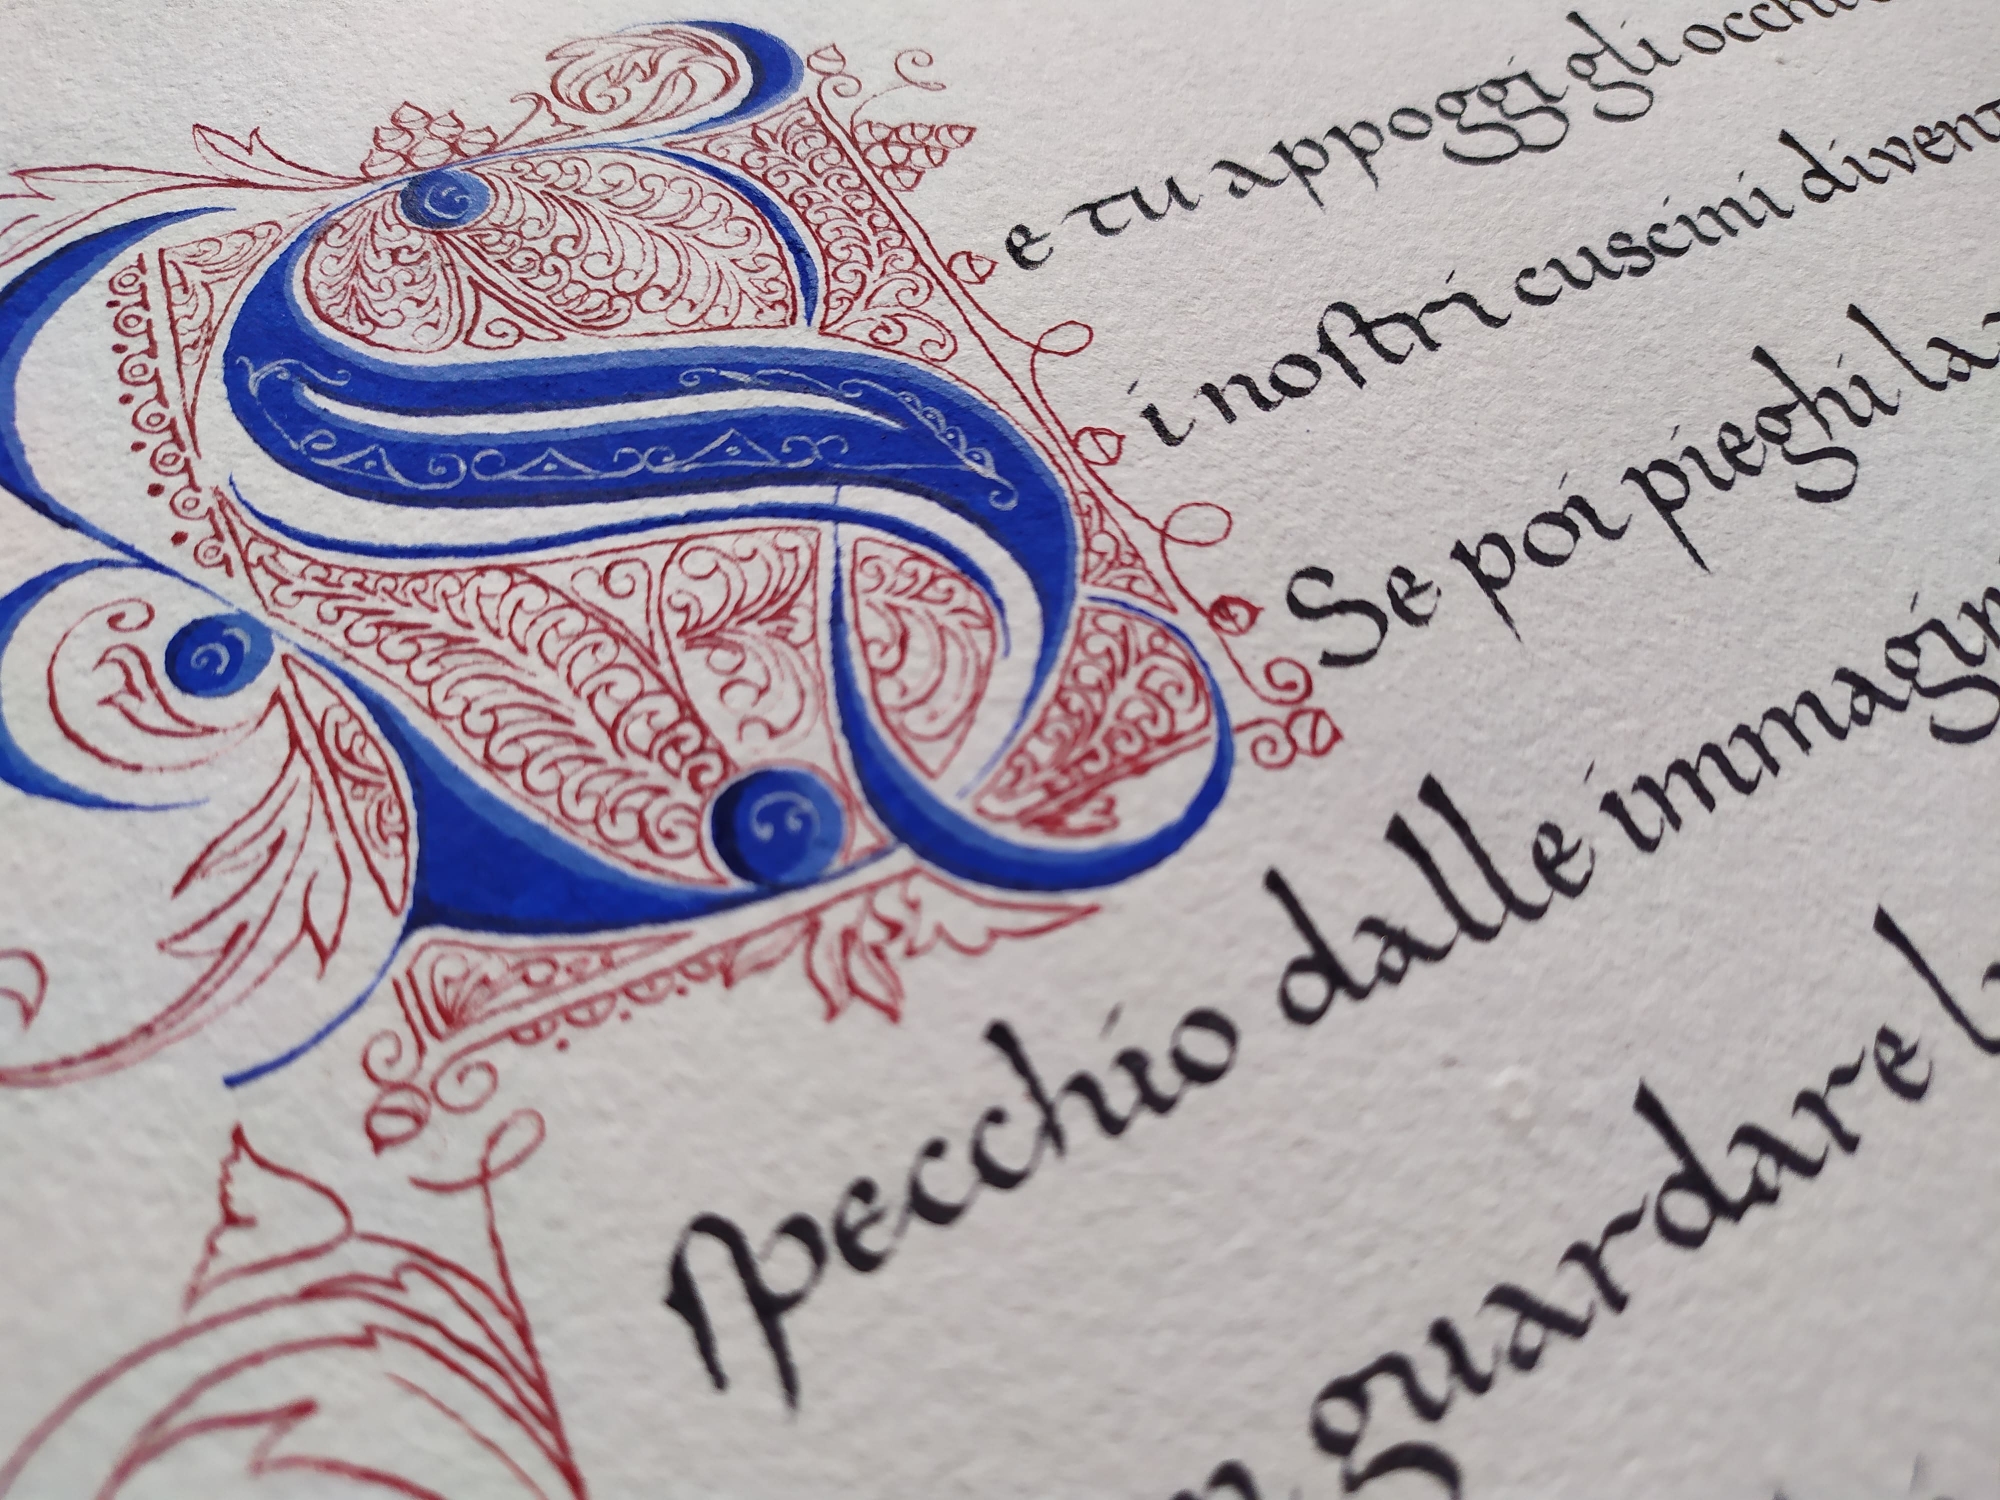 Se tu appoggi gli occhi
i noſtri cuscini divent
Se poi pieghi la
ſpecchio dalle immagin
guardare